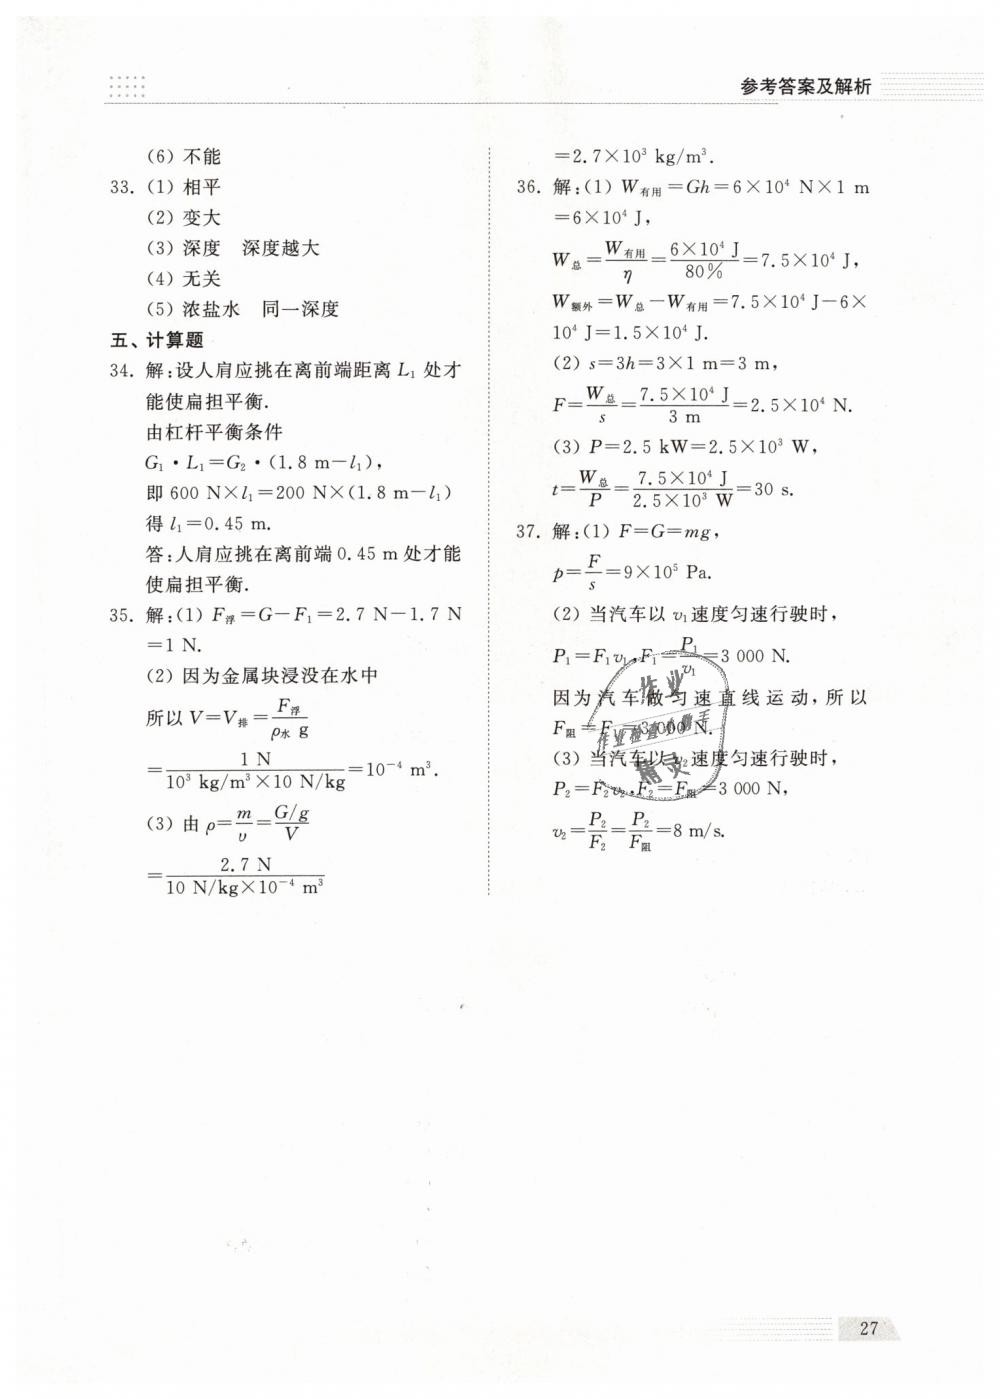 参考答案及解析
(6) 不能
33. (1) 相平
(2) 变大
(3) 深度　深度越大
(4) 无关
(5) 浓盐水　同一深度
五、计算题
34. 解:设人肩应挑在离前端距离 L₁ 处才
能使扁担平衡.
由杠杆平衡条件
G₁・L₁=G₂・(1.8 m−l₁),
即 600 N×l₁=200 N×(1.8 m−l₁)
得 l₁=0.45 m.
答:人肩应挑在离前端 0.45 m 处才能
使扁担平衡.
35. 解:(1) F浮=G−F₁=2.7 N−1.7 N
=1 N.
(2) 因为金属块浸没在水中
所以 V=V排=F浮/ρ水 g
=1 N/10³ kg/m³×10 N/kg=10⁻⁴ m³.
(3) 由 ρ=m/υ=G/g/V
=2.7 N/10 N/kg×10⁻⁴ m³
=2.7×10³ kg/m³.
36. 解:(1) W有用=Gh=6×10⁴ N×1 m
=6×10⁴ J,
W总=W有用/η=6×10⁴ J/80%=7.5×10⁴ J,
W额外=W总−W有用=7.5×10⁴ J−6×
10⁴ J=1.5×10⁴ J.
(2) s=3h=3×1 m=3 m,
F=W总/s=7.5×10⁴ J/3 m=2.5×10⁴ N.
(3) P=2.5 kW=2.5×10³ W,
t=W总/P=7.5×10⁴ J/2.5×10³ W=30 s.
37. 解:(1) F=G=mg,
p=F/s=9×10⁵ Pa.
(2) 当汽车以 v₁速度匀速行驶时,
P₁=F₁v₁,F₁=P₁/v₁=3 000 N.
因为汽车做匀速直线运动,所以
F阻=F₁=3 000 N.
(3) 当汽车以 v₂速度匀速行驶时,
P₂=F₂v₂,F₂=F阻=3 000 N,
v₂=P₂/F₂=P₂/F阻=8 m/s.
作业
作业检查小助手
精灵
27